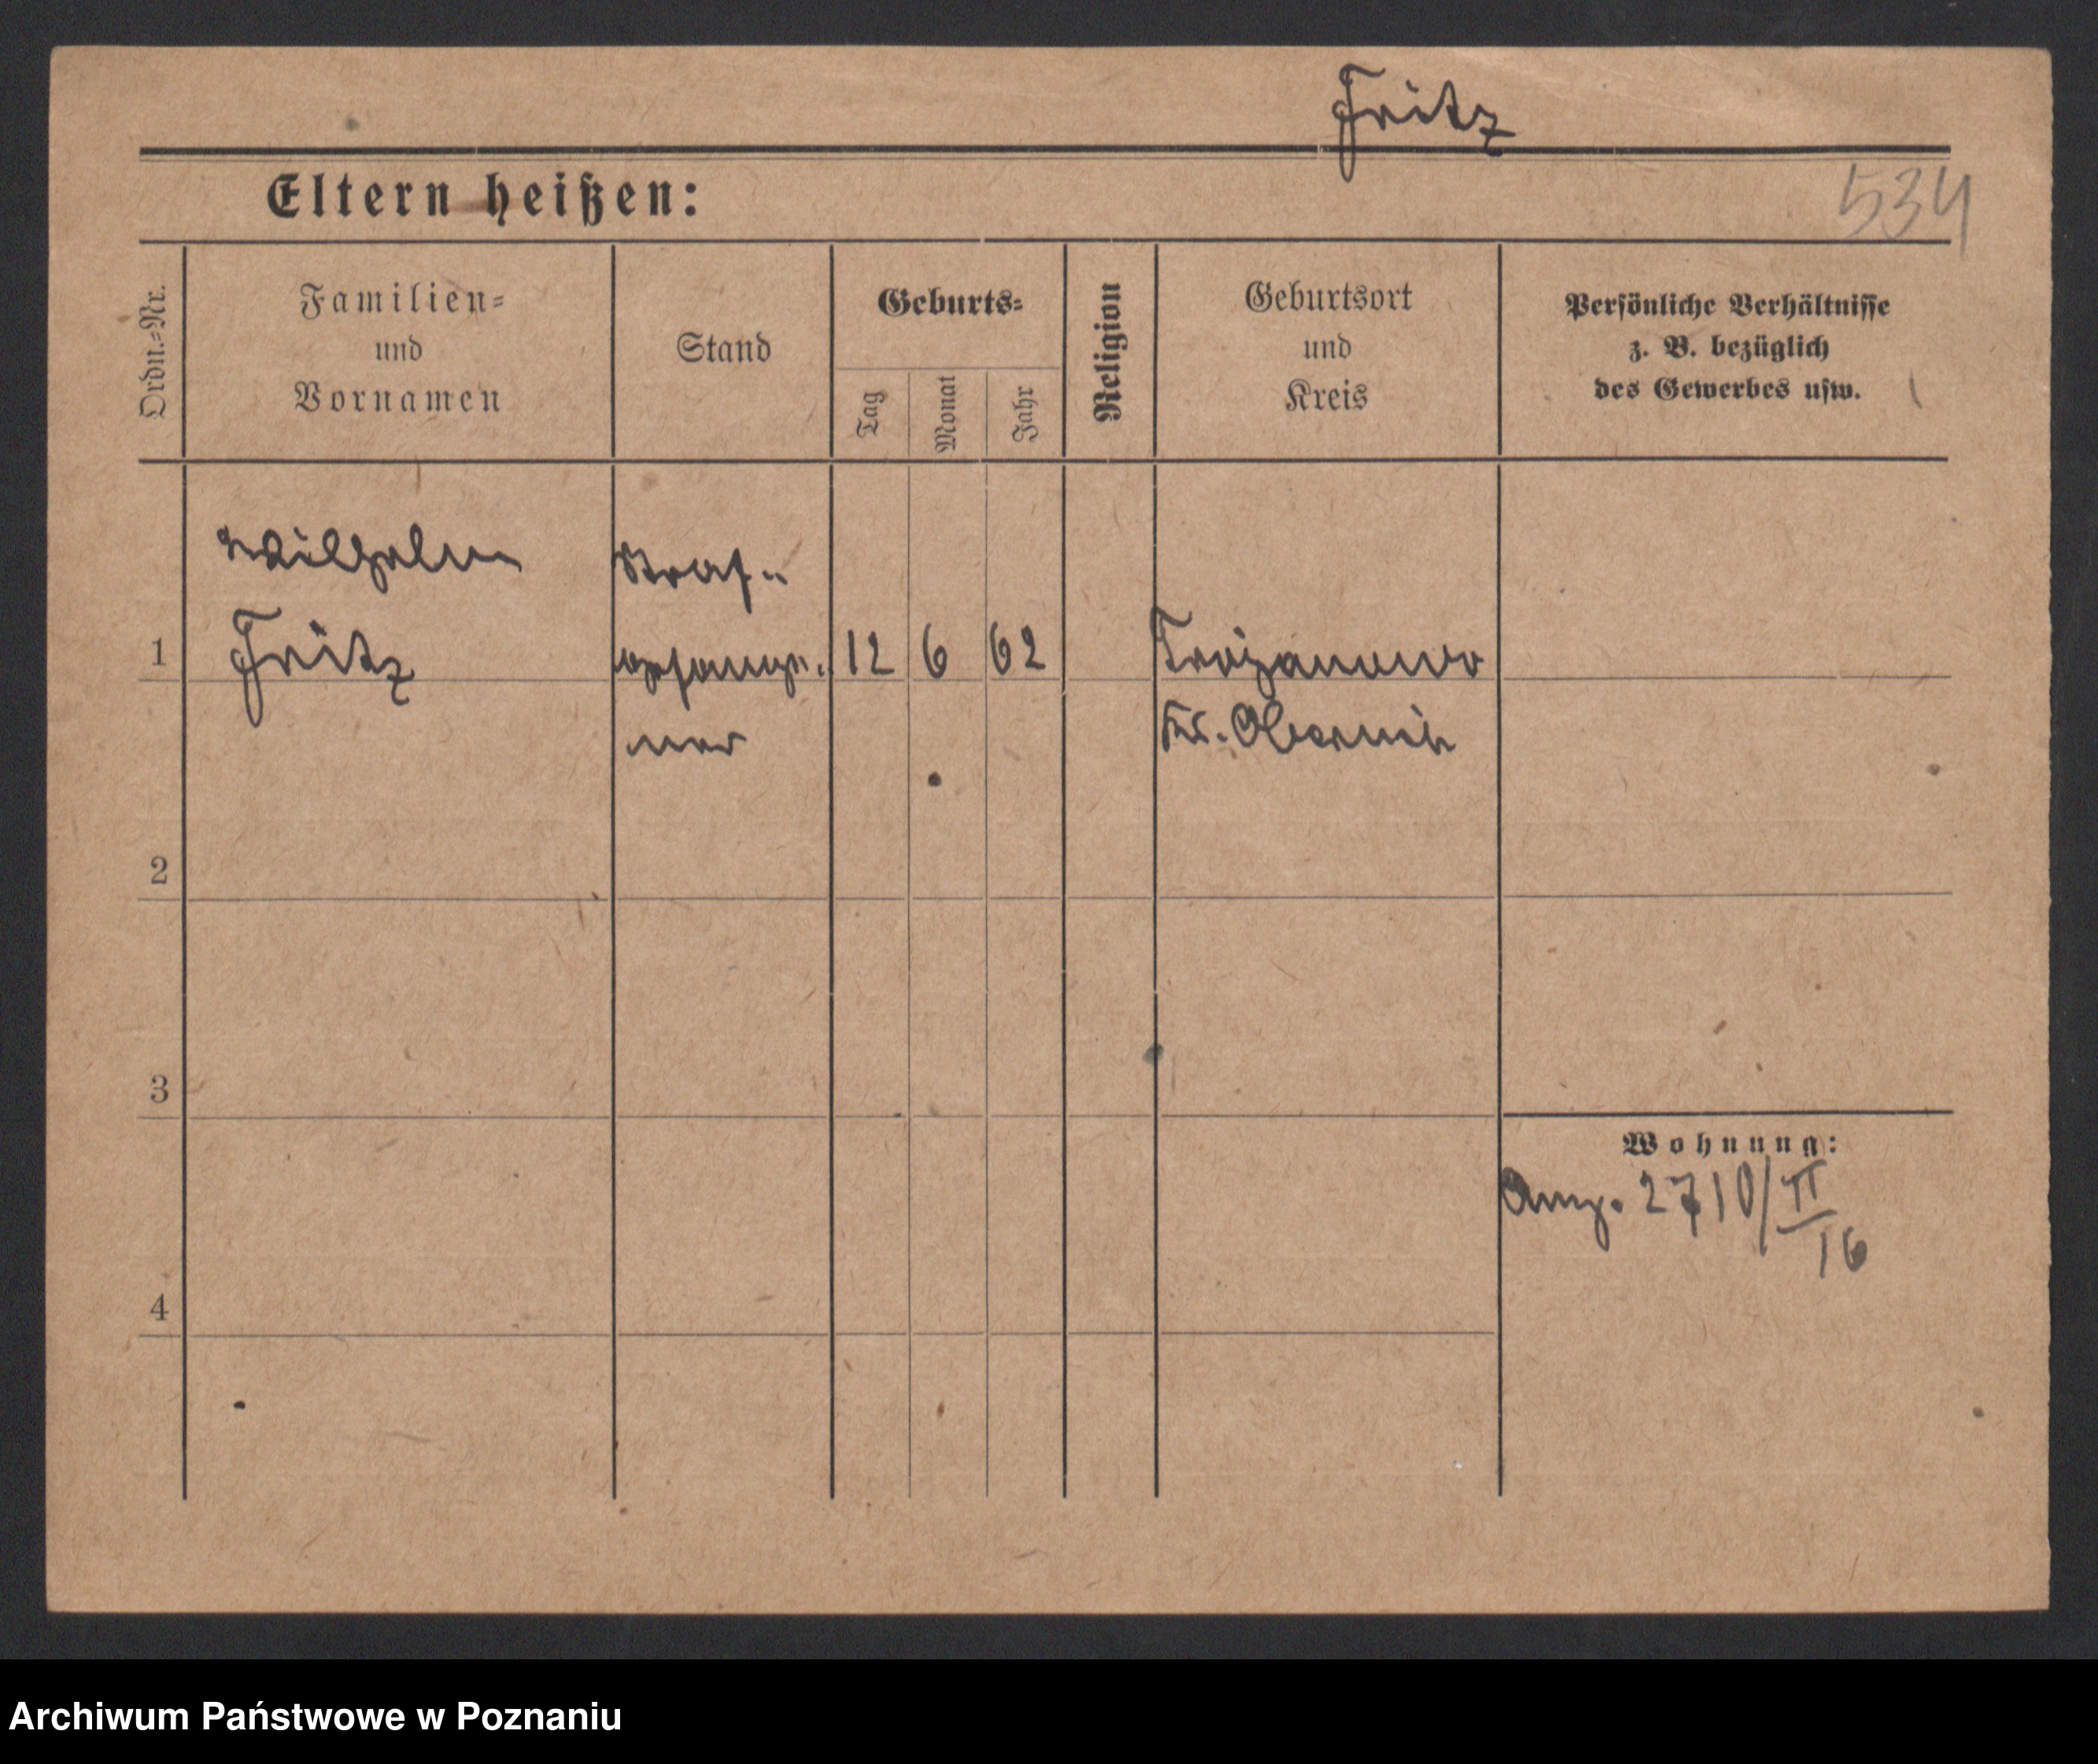 Fritz
Eltern heißen:
534
Ordn.-Nr.
Familien-
und
Vornamen
Stand
Geburts-
Tag
Monat
Jahr
Religion
Geburtsort
und
Kreis
Persönliche Verhältnisse
z. B. bezüglich
des Gewerbes usw.
Wilhelm
Fritz
Straf-
gefange-
ner
1
12
6
62
Trojanowo
Kr. Obornik
2
3
4
Wohnung:
Anz. 2710/II
16
Archiwum Państwowe w Poznaniu